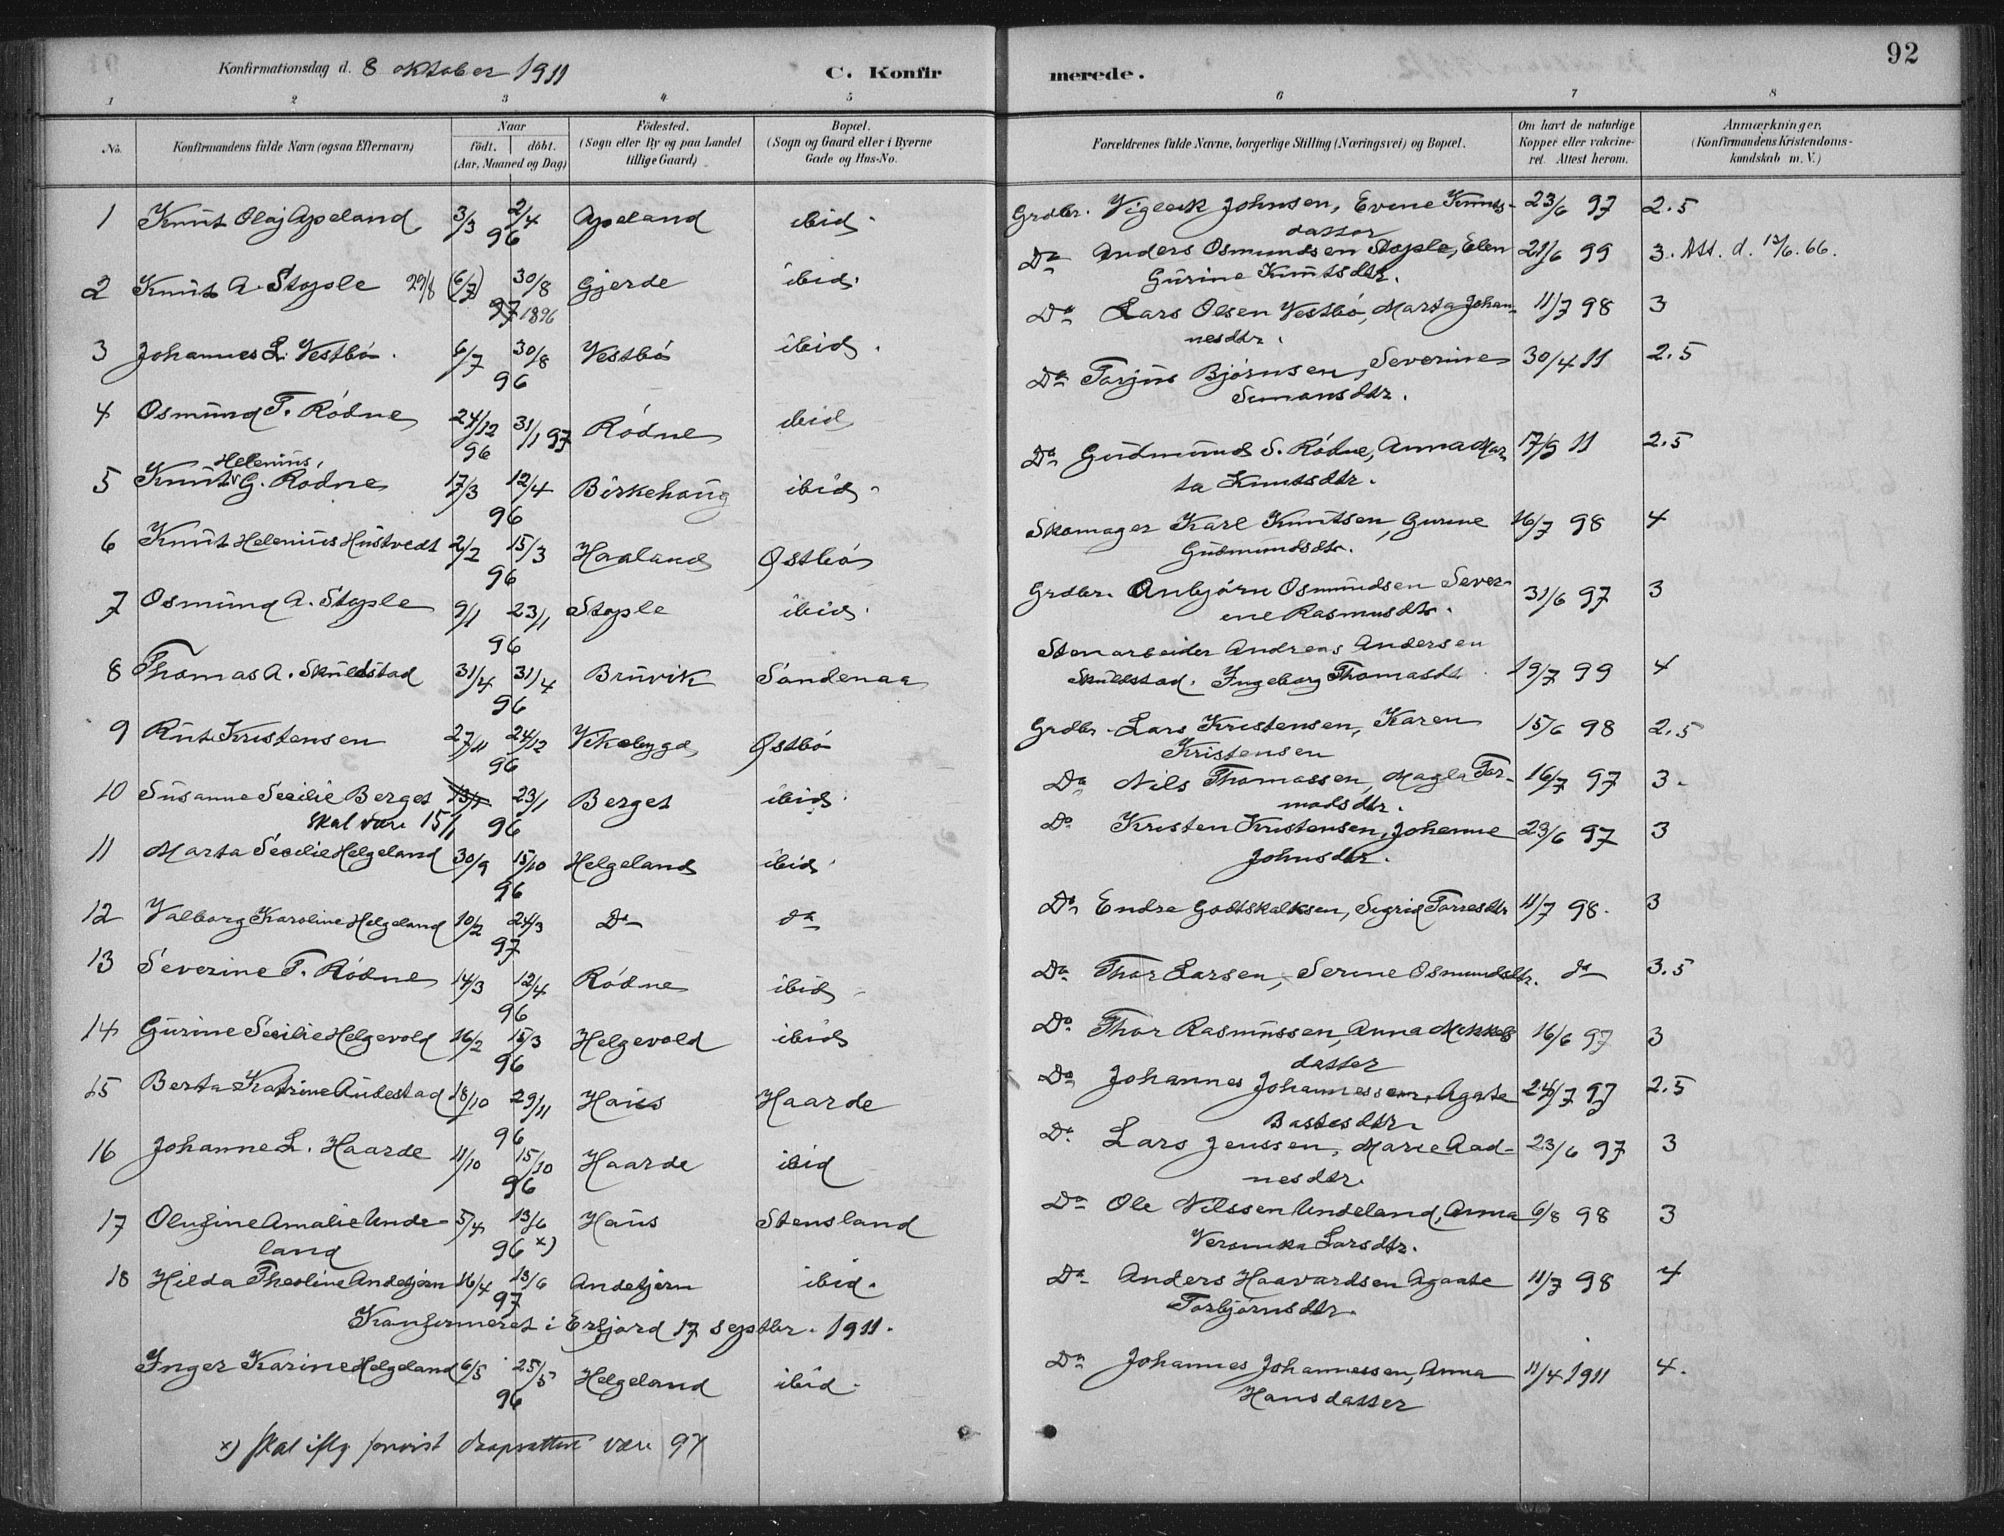 Konfirmationsdag d. 8 oktober 1911
C. Konfir
merede.
92
1 2 3 4 5 6 7 8
No.
Konfirmandens fulde Navn (ogsaa Efternavn)
Naar
födt. döbt.
(Aar, Maaned og Dag)
Födested.
(Sogn eller By og paa Landet
tillige Gaard)
Bopæl.
(Sogn og Gaard eller i Byerne
Gade og Hus-No.
Forældrenes fulde Navne, borgerlige Stilling (Næringsvei) og Bopæl.
Om havt de naturlige
Kopper eller vakcine-
ret. Attest herom.
Anmærkninger.
(Konfirmandens Kristendoms-
kundskab m. V.)
1 Knut Olaj Apeland 3/3 2/4 Apeland ibid.
96
Grdbr. Vigleik Johnsen, Evine Knuts- 23/6 97 2.5
datter
2 Knut A. Stople 29/8 (6/7) 30/8 Gjerde ibid.
97 1896
Do Anders Osmundsen Stople, Elen 21/6 99 3. Att. d. 13/6.66.
Gurine Knutsdtr.
3 Johannes L. Vestbø. 6/7 30/8 Vestbø ibid.
96
Do Lars Olsen Vestbö, Marta Johan- 11/7 98 3
nesdtr.
4 Osmund T. Rödne 24/12 31/1 97 Rödne ibid
96
Do Torjus Bjørnsen, Severine 30/4 11 2.5
Simonsdtr.
Helenius,
5 Knut G. Rödne 17/3 12/4 Birkehaug ibid.
96
Do Gudmund S. Rödne, Anna Mar 17/9 11 2.5
ta Knutsdtr.
6 Knut Helenius Hustvedt 2/2 15/3 Haaland Østbø
96
Skomager Karl Knutsen, Gurine 16/7 98 4
Gudmundsdtr.
7 Osmund A. Stople 9/1 23/1 Stople ibid.
96
Grdbr. Anbjörn Osmundsen Sever- 31/6 97 3
ine Rasmusdtr.
8 Thomas A. Skuldstad 31/4 31/4 Bruvik Söndenaa
96
Stenarbeider Andreas Andersen
Skuldstad. Ingeborg Thomasdt. 19/7 99 4
9 Rut Kristensen 27/11 24/12 Vikebygd Østbø
96
Grdbr. Lars Kristensen, Karen 15/6 98 2.5
Kristensen
10 Susanne Secilie Berget 13/1 23/1 Berget ibid.
skal være 15/1 96
Do Nils Thomassen, Magla Tor- 16/7 97 3.
modsdtr.
11 Marta Secilie Helgeland 30/9 15/10 Helgeland ibid.
96
Do Kristen Kristensen, Johanne 23/6 97 3
Johnsdtr.
12 Valborg Karoline Helgeland 10/2 24/3 Do do
97
Do Endre Godtskalksen, Sigrid Torresdtr 11/7 98. 3
13 Severine T. Rödne 14/3 12/4 Rödne ibid
96
Do Thor Larsen, Serine Osmundsdtr. do 3.5
14 Gurine Secilie Helgevold 16/2 15/3 Helgevold ibid
96
Do Thor Rasmussen, Anna Mikkels 16/6 97 3
datter
15 Berta Katrine Audestad 18/10 29/11 Haus Haarde
96
Do Johannes Johannessen, Agate 24/7 97 2.5
Bastesdtr
16 Johanne L. Haarde 11/10 15/10 Haarde ibid
96
Do Lars Jenssen, Marie Aad- 23/6 97 3
nesdtr.
17 Olufine Amalie Unde- 5/4 13/6 Haus Stensland
land 96 x)
Do Ole Nilssen Undeland, Anna 6/8 98 3
Veronika Larsdtr.
18 Hilda Theoline Andetjern 16/4 13/6 Andetjern ibid.
97
Do Anders Haavardsen Agaate 11/7 98 4
Torbjörnsdtr.
Konfirmeret i Erfjord 17 septbr. 1911.
Inger Karine Helgeland 6/5 25/5 Helgeland ibid.
96
Do Johannes Johannessen, Anna 11/4 1911 4.
Hansdatter
x) skal iflg. være 97